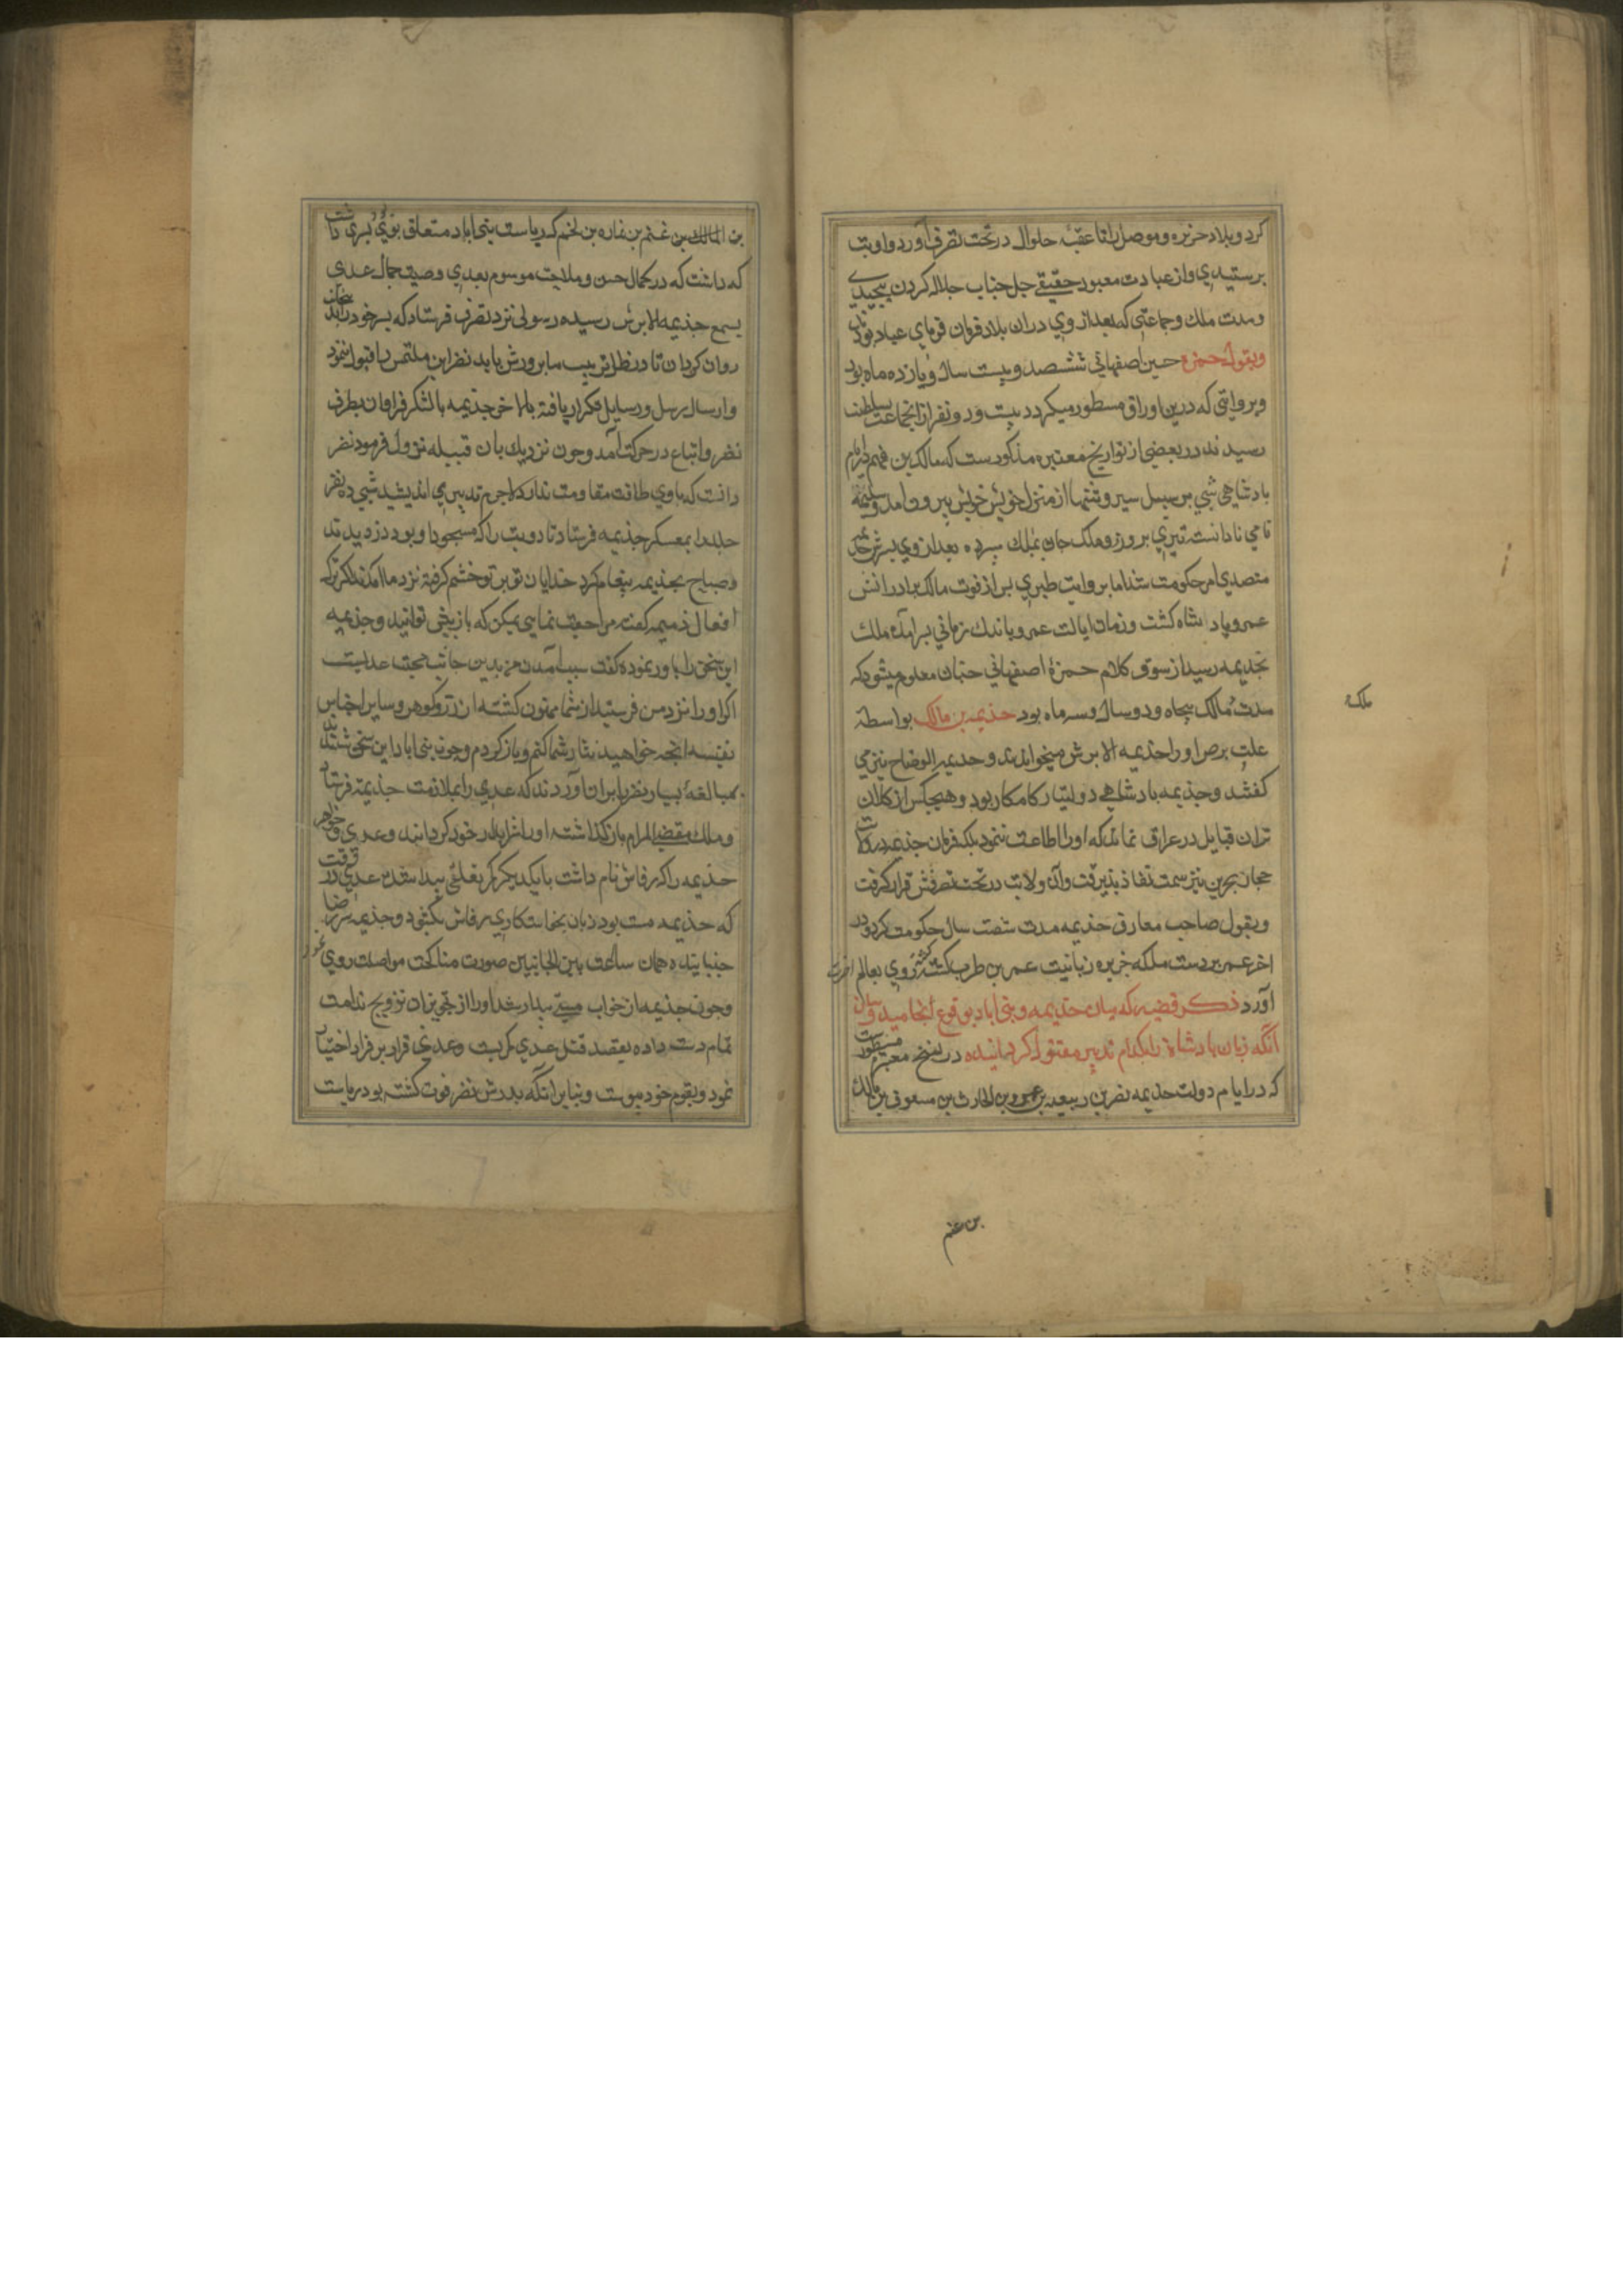 کرد و بلاد جزیره و موصل را تا عقبه حلوان در تحت تصرف آورد و او بت
پرستیدی و از عبادت معبود حقیقی جل جناب جلاله کردن پیچیدی
و مدت ملک و جماعتی که بعد از وی دران بلاد فرمان فرمای عباد بودند
وبقول حمزه حسین اصفهانی ششصد و بیست سال و یازده ماه بود
و بروایتی که درین اوراق مسطور میکردد بیست و دو نفر ازان جماعت بسلطنت
رسیدند در بعضی از تواریخ معتبره مذکورست که مالک بن فهم در ایام
بادشاهی شبی بر سبیل سیر و تنها از منزل خویش بیرون امد و سلیمه
نامی نادانسته تیری بر وی زد و ملک جان بملک سپرده بعد از وی پسرش جذیمه
متصدی امر حکومت شد اما بروایت طبری بس از فوت مالک برادرانش
عمرو بادشاه کشت و زمان ایالت عمرو باندک زمانی بسر امده ملک
بجذیمه رسید از سوق کلام حمزهٔ اصفهانی چنان معلوم میشود که
مدت مالک پنجاه و دو سال و سه ماه بود جذیمه بن مالک بواسطه
علت برص او را جذیمه الابرش میخواندند و جذیمه الوضاح نیز می
کفتند و جذیمه بادشاهی دولتیار کامکار بود و هیچکس از کلان
تران قبایل در عراق نماند که او را اطاعت ننمود بلکه فرمان جذیمه در ولایت
حجاز بحرین نیز سمت نفاذ بذیرفت و آن ولایت در تحت تصرفش قرار کرفت
و بقول صاحب معارف جذیمه مدت شصت سال حکومت کرد و در
اخر عمر بر دست ملکه جزیره زبا بنت عمر بن طرب کشته کشته روی بعالم اخرت
آورد ذکر قضیه که میان جذیمه و بنی ایاد بوقوع انجامید و بیان
آنکه زبان بادشاه را بکدام تدبیر مقتول کردانیده در نسخ معتبره مسطورست
که در ایام دولت جذیمه نصر بن ربیعه بن عمرو بن الحارث بن مسعود بن مالک
ملک
بن غنم
بن المالک بن غنم بن نماره بن لخم که ریاست بنی ایاد متعلق بوی بود پسری داشت
که داشت که در کمال حسن و ملاحت موسوم بعدی و صیت جمال عدی
بسمع جذیمه الابرش رسیده رسولی نزد نصر فرستاد که پسر خود را بجانب
روان کردان تا در نظر تربیت ما پرورش یابد نصر این ملتمس را قبول ننمود
و ارسال رسل و رسایل مکرار یافته بالاخر جذیمه بالشکر فراوان بطرف
نصر و اتباع در حرکت آمد و چون نزدیک بان قبیله نزول فرمود نصر
دانست که با وی طاقت مقاومت ندارد لاجرم تدبیری اندیشید شبی ده نفر
جلد را بمعسکر جذیمه فرستاد تا دو بت را که مسجود او بود دزدیدند
و صباح بجذیمه پیغام کرد خدایان تو بر تو خشم کرفته نزد ما امدند اکر ترک
افعال ذمیمه کفته مراجعت نمایی یمکن که باز پیش تو ایند و جذیمه
این سخن را باور نموده کفت سبب آمدن من بدین جانب محبت عدیست
اکر او را نزد من فرستید از شما ممنون کشته از زر و کوهر و سایر اجناس
نفیسه انچه خواهید نثار شما کنم و باز کردم و چون بنی ایاد این سخن شنیدند
بمبالغهٔ بسیار نصر را بران آوردند که عدی را بملازمت جذیمه فرستاد
و ملک مقضی المرام باز کذاشته او را شرابدار خود کردانید و عدی و خواهر
جذیمه را که رقاش نام داشت با یکدیکر تعلقی پیدا شد عدی در وقتی
که جذیمه مست بود زبان بخواستکاری رقاش بکشود و جذیمه سر رضا
جنبانیده همان ساعت بین الجانبین صورت مناکحت مواصلت روی نمود
و چون جذیمه از خواب مستی بیدار شد او را از تجویز ان تزویج ندامت
تمام دست داده بقصد قتل عدی کمر بست و عدی قرار بر فرار اختیار
نمود و بقوم خود پیوست و بنابر انکه پدرش نصر فوت کشته بود بریاست